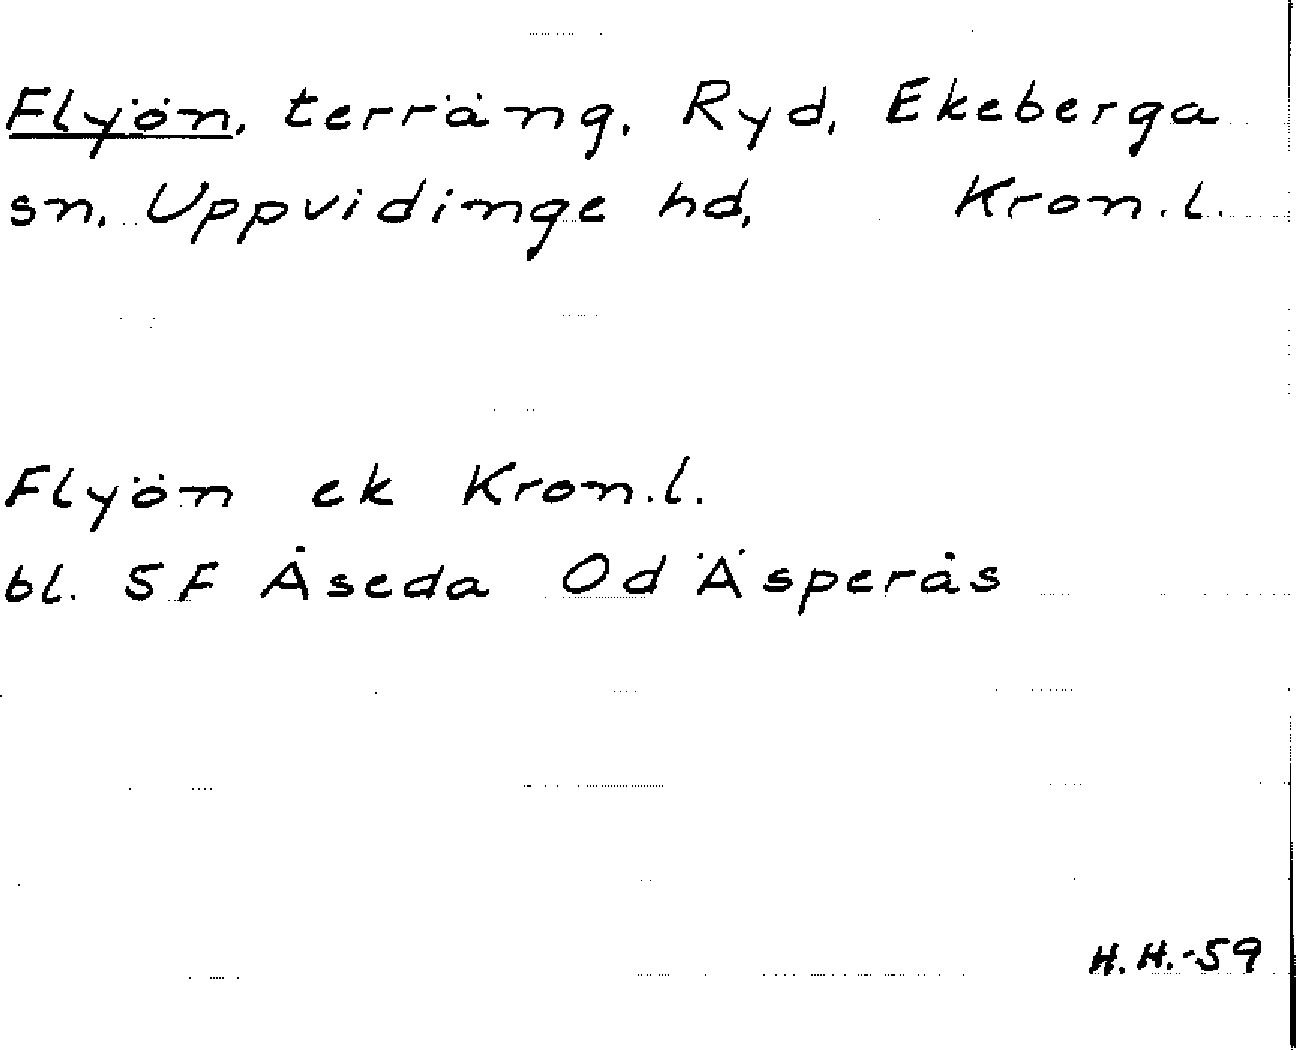 Flyön, terräng, Ryd, Ekeberga
sn, Uppvidinge hd, Kron.l.
Flyön ek Kron.l.
bl. 5F Åseda Od Äsperås
H.H.-59